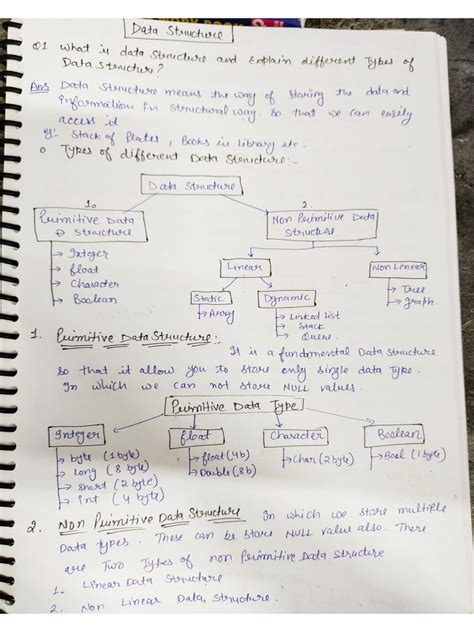 Data Structure
Q1 What is data structure and Explain different Types of
Data Structur?
Ans Data Structure means the way of storing the data and
information in structural way. so that we can easily
access it
Eg:- Stack of Plates, Books in Library etc.
Types of different Data Structure:-
Data Structure
1. 2.
Primitive Data Structure
Non Primitive Data Structure
Integer
float
Character
Boolean
Linear
Non Linear
Static
Dynamic
Array
Linked list
Stack
Queue.
Tree
graph.
1. Primitive Data Structure:-
It is a fundamental Data structure
so that it allow you to store only single data type.
In which we can not store NULL values.
Primitive Data Type
Integer
float
Character
Boolean
byte (1 byte)
Long (8 byte)
short (2 byte)
int (4 byte)
float (4b)
Double (8b)
Char (2 byte)
Bool (1 byte)
2. Non Primitive Data Structure In which we store multiple
Data types. These can be store NULL value also. There
are Two Types of non Primitive Data Structure
1- Linear Data Structure
2. Non Linear Data, Structure.